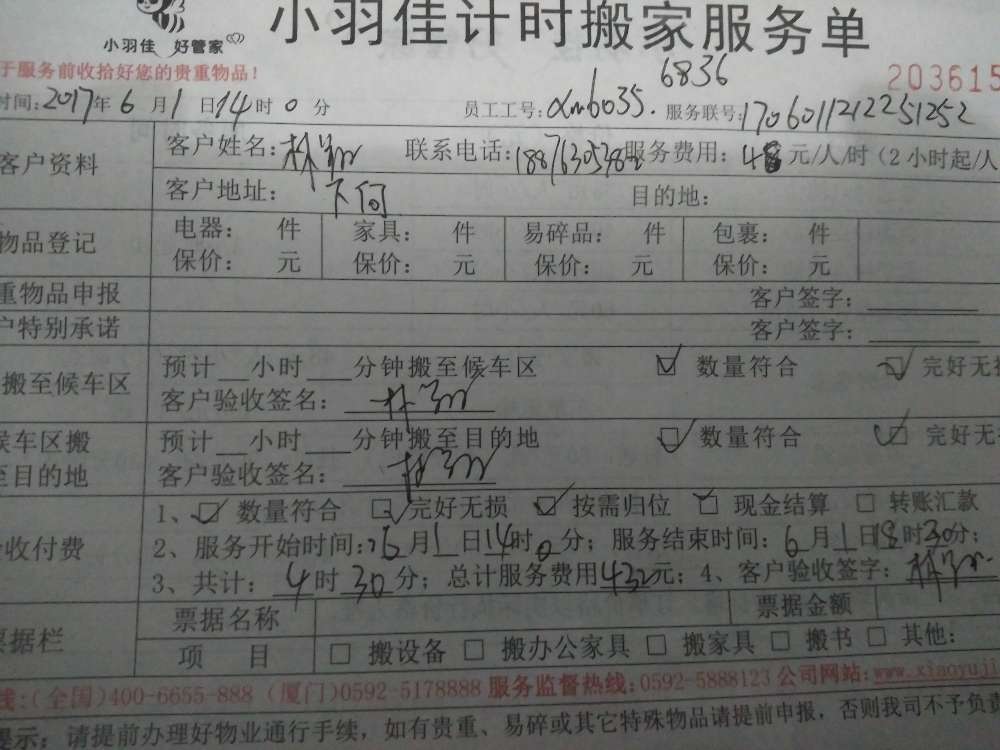 小羽佳 好管家
小羽佳计时搬家服务单
于服务前收拾好您的贵重物品！
203615
6836
时间:2017年6月1日14时0分 员工工号: xm6035. 服务联号:1706011212251252
客户资料
客户姓名: 联系电话: 服务费用: 48元/人/时（2小时起/人
客户地址: 下何 目的地:
物品登记
电器: 件 家具: 件 易碎品: 件 包裹: 件
保价: 元 保价: 元 保价: 元 保价: 元
重物品申报 客户签字:
户特别承诺 客户签字:
搬至候车区
预计__小时___分钟搬至候车区 ☑ 数量符合 ☑ 完好无损
客户验收签名:
候车区搬
至目的地
预计__小时___分钟搬至目的地 ☑ 数量符合 ☑ 完好无
客户验收签名:
收付费
1、☑ 数量符合 ☑ 完好无损 ☑ 按需归位 ☑ 现金结算 □ 转账汇款
2、服务开始时间: 6月1日14时0分；服务结束时间: 6月1日18时30分；
3、共计: 4时30分；总计服务费用432元；4、客户验收签字:
票据栏
票据名称 票据金额
项 目 □ 搬设备 □ 搬办公家具 □ 搬家具 □ 搬书 □ 其他:
线:(全国)400-6655-888 (厦门)0592-5178888 服务监督热线:0592-5888123 公司网站:www.xiaoyuji
提示: 请提前办理好物业通行手续，如有贵重、易碎或其它特殊物品请提前申报，否则我司不予负责